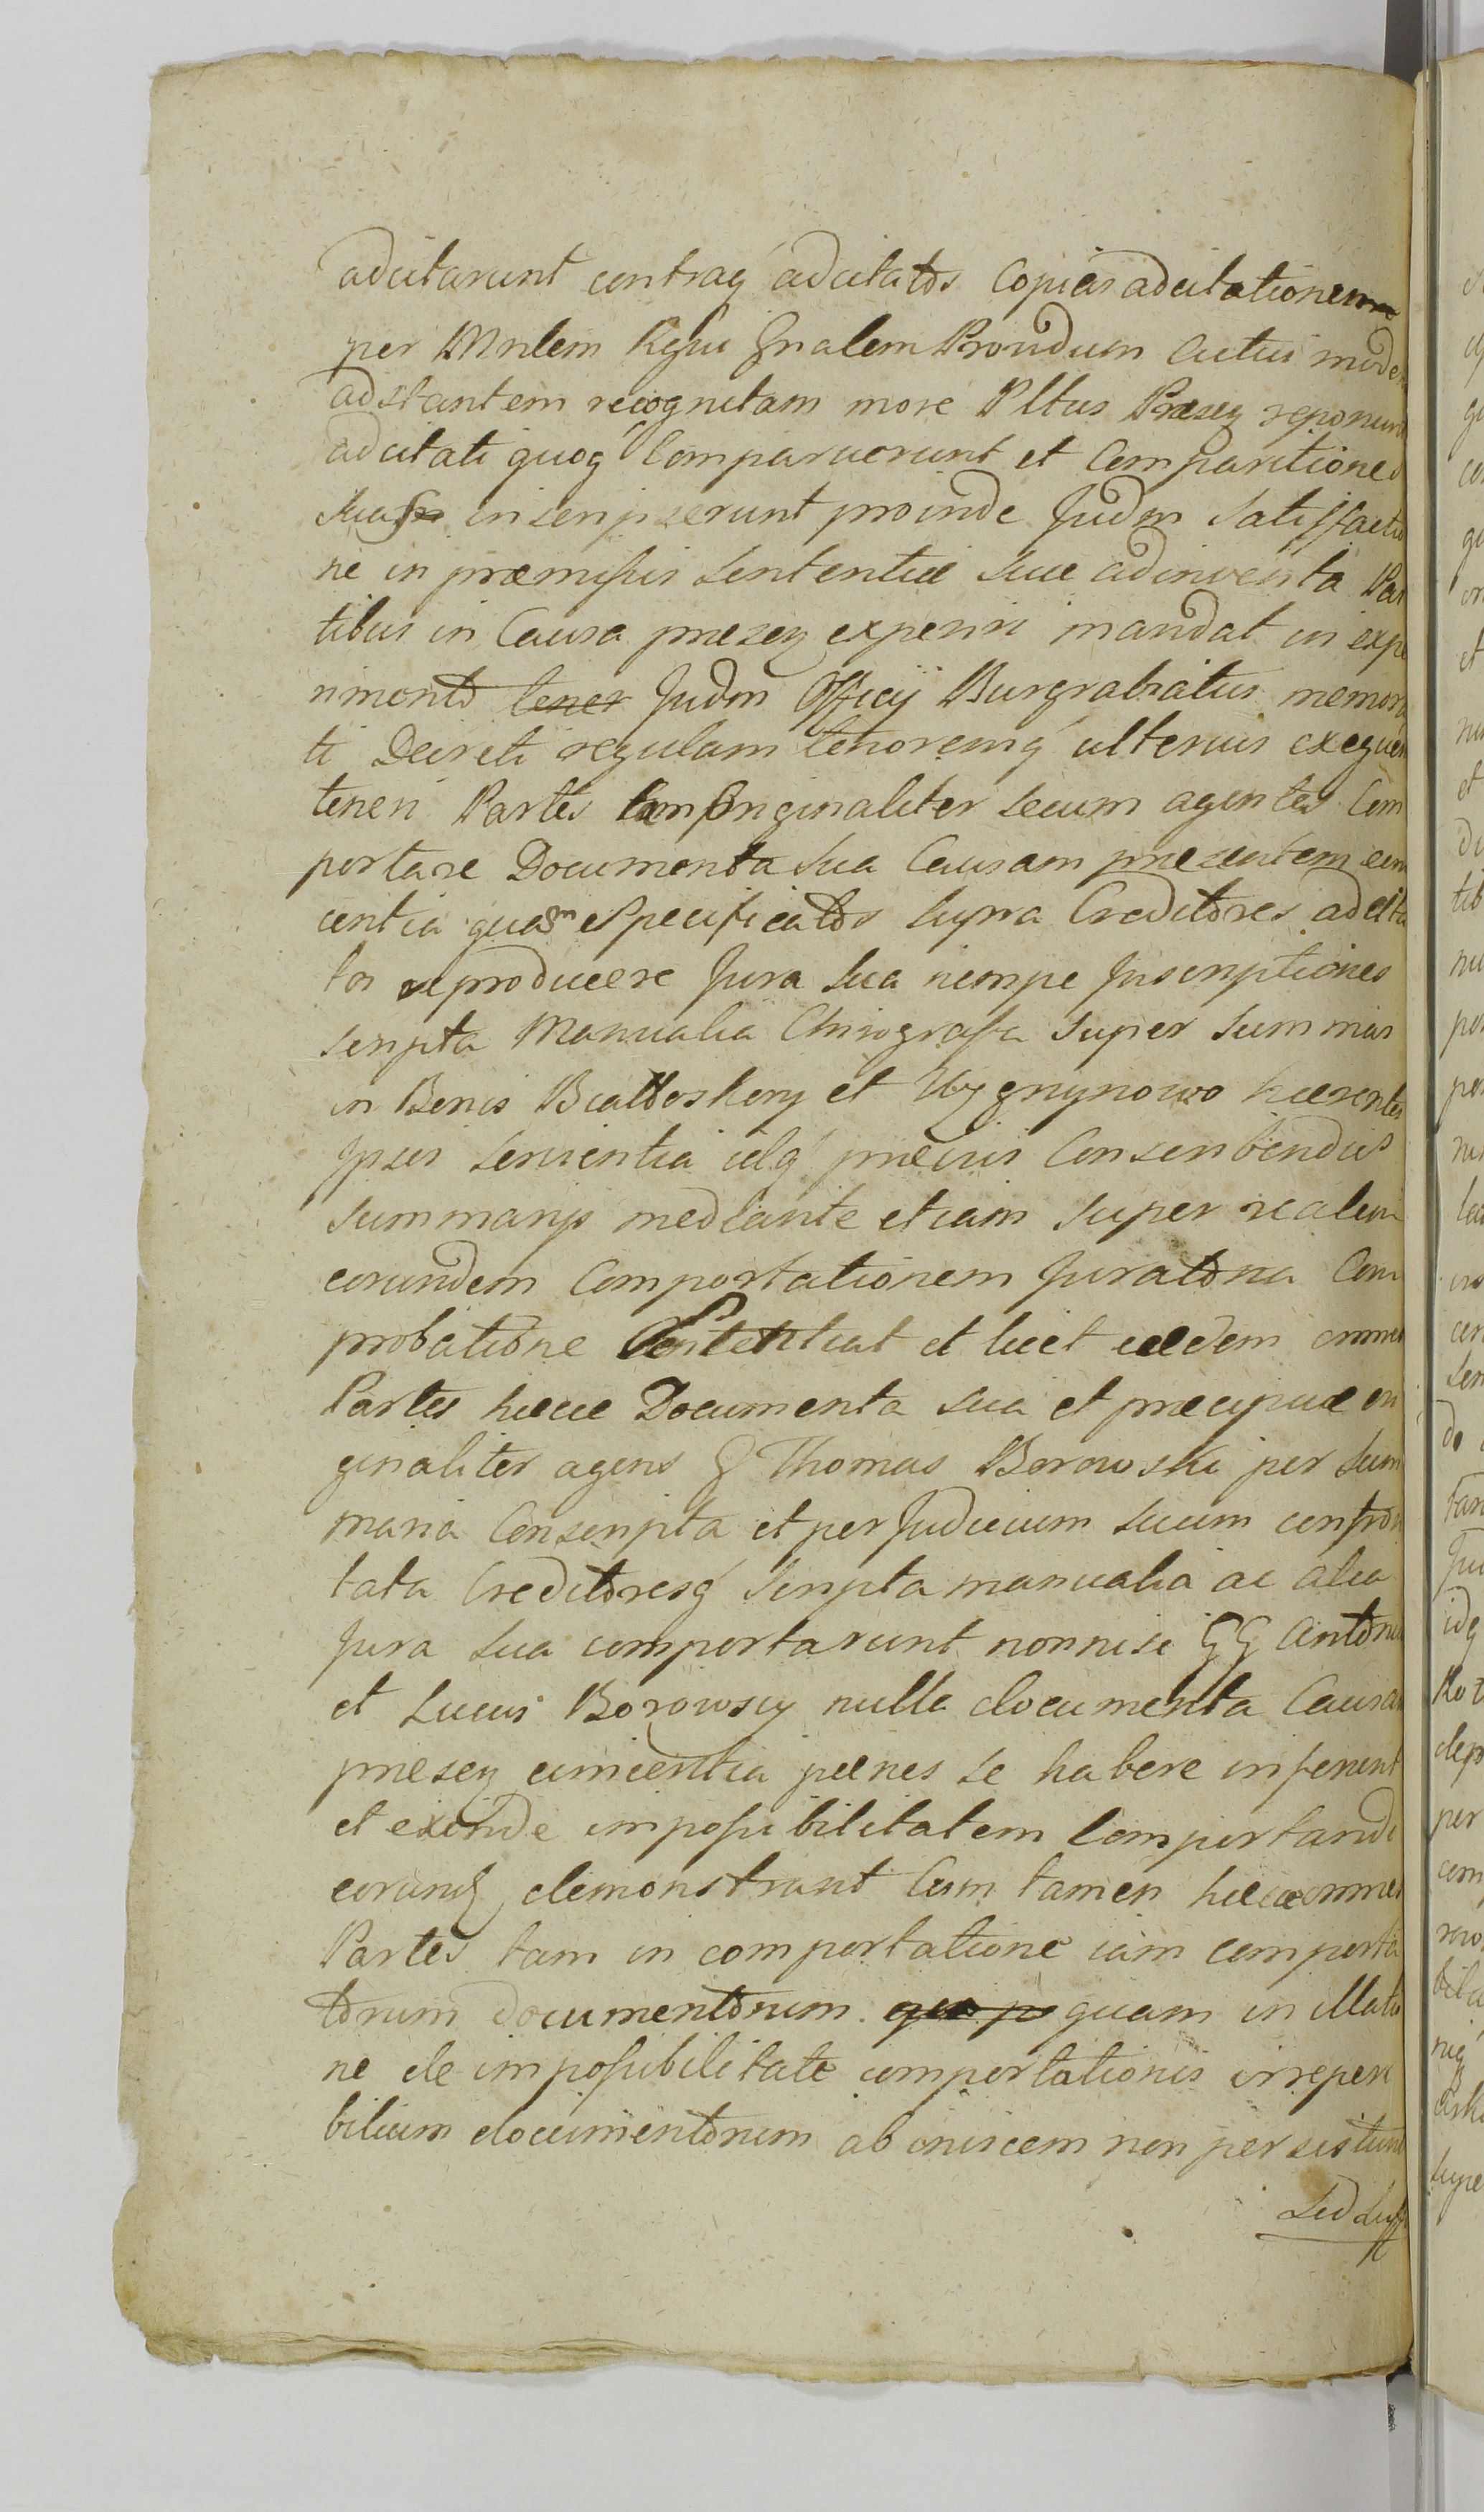 adcitarunt contraq́ adcitatos Copias adcitationem
per Mnlem Regni Gnalem Providum actui moder
adstantem recognitam more Pltus Praesen reponunt
adcitati quoq́ Comparuerunt et Comparitiones
suas inscripserunt proinde Judm Satisfactio
ne in praemissis Sententiae suae adinventa Par
tibus in Causa praesen experiri mandat in expe
rimento Judm Officij Burgrabiatus memora
ti Decreti regulam tenoremq́ ulterius exequen
teneri Partes originaliter secum agentes Com
portare Documenta sua Causam praesentem evin
centia quam especificatos supra Creditores adcita
tos reproducere Jura sua nempe Inscriptiones
scripta Manualia Chirografa super Summas
in Bonis et haerentes
Ipsis servientia idq́ praevijs Conscribendis
Summarijs mediante etiam super realem
eorundem Comportationem Juratoria Com
probatione et licet eaedem omnes
Partes haecce Documenta sua et praecipuae ori
ginaliter agens G Thomas Borowski per Sum
maria Conscripta et per Judicium suum confron
tata Creditoresq́ Scripta manualia ac alia
Jura sua comportarunt nonnisi GG Antonius
et Lucas Borowscy nulla documenta Causam
praesen evincentia paenes se habere inferunt
et exinde impossibilitatem Comportandi
eorund demonstrant Cum tamen haecce omnes
Partes tam in comportatione iam comporta
torum documentorum quam in illatio
ne de impossibilitate comportationis irreperi
bilium documentorum ab invicem non persistunt
Sed